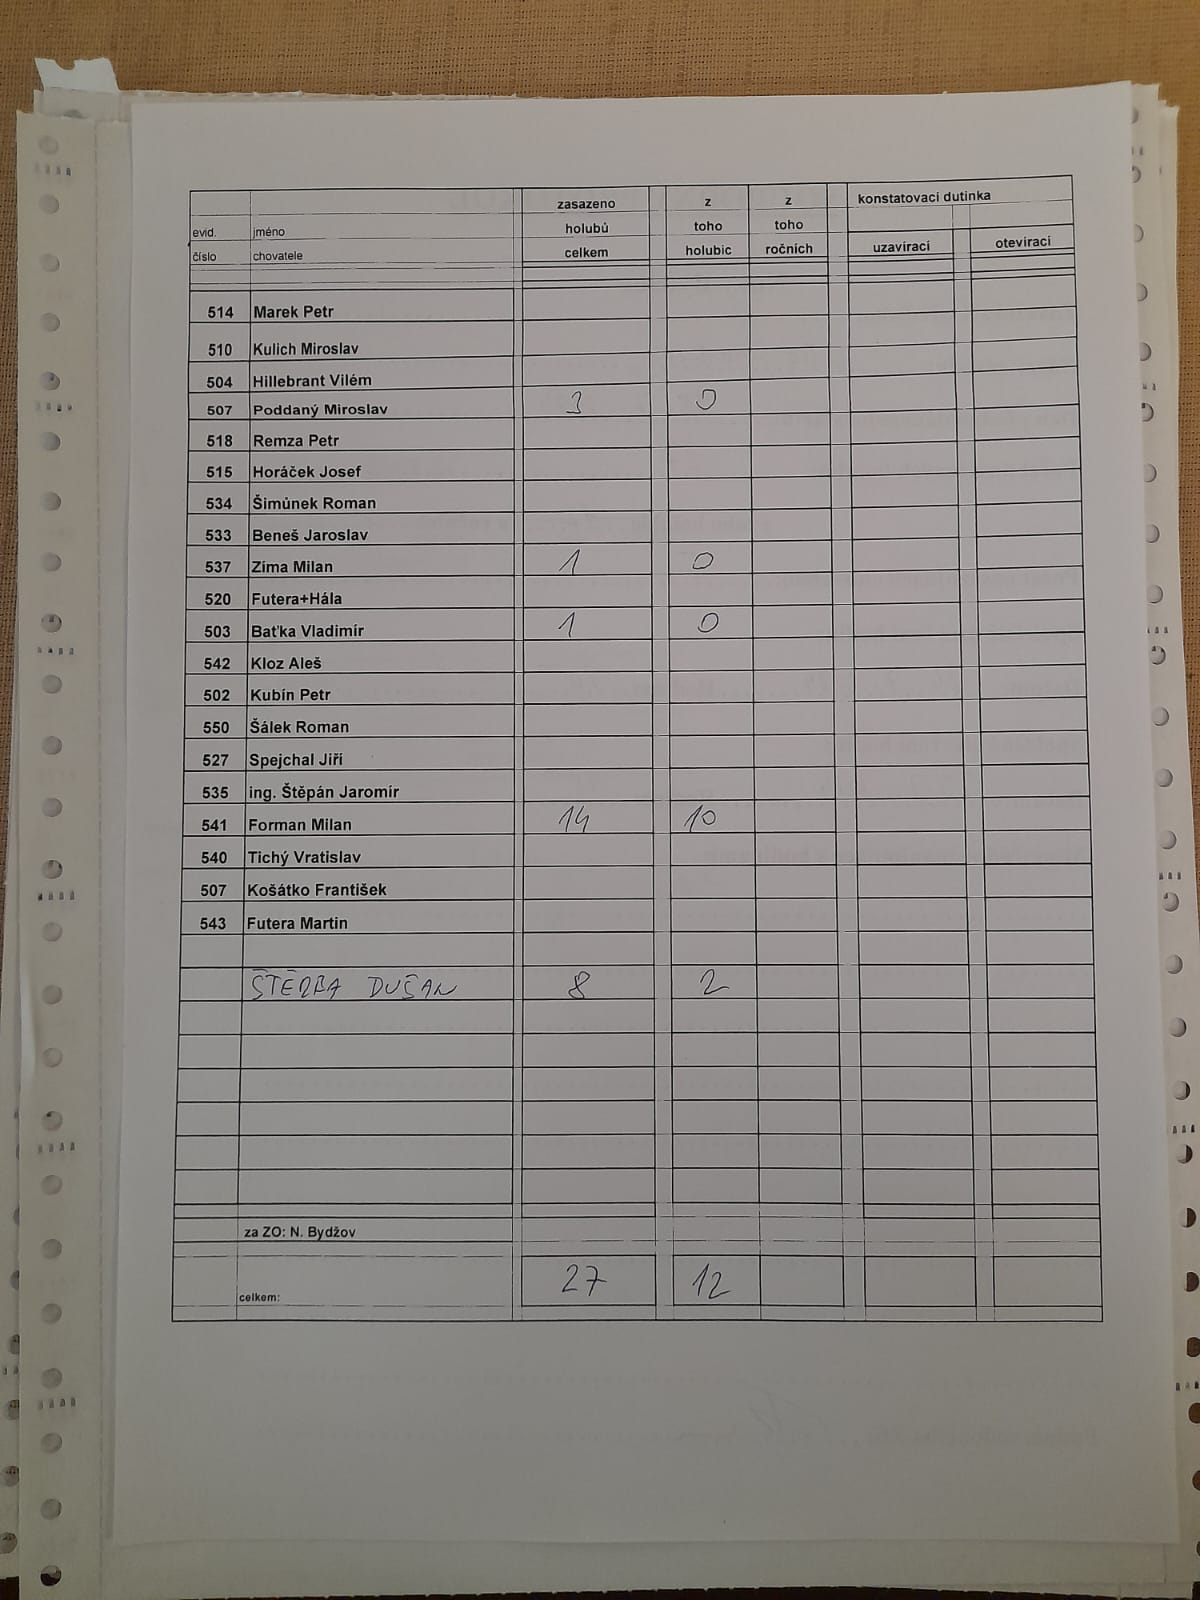 zasazeno z z konstatovaci dutinka
evid. jméno holubů toho toho
číslo chovatele celkem holubic ročních uzavíraci otevíraci
514 Marek Petr
510 Kulich Miroslav
504 Hillebrant Vilém
507 Poddaný Miroslav 3 0
518 Remza Petr
515 Horáček Josef
534 Šimůnek Roman
533 Beneš Jaroslav
537 Zíma Milan 1 0
520 Futera+Hála
503 Baťka Vladimír 1 0
542 Kloz Aleš
502 Kubín Petr
550 Šálek Roman
527 Spejchal Jiří
535 ing. Štěpán Jaromír
541 Forman Milan 14 10
540 Tichý Vratislav
507 Košátko František
543 Futera Martin
ŠTĚRBA DUŠAN 8 2
za ZO: N. Bydžov
celkem: 27 12